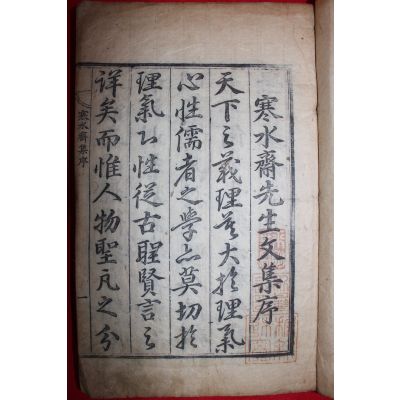 寒水齋先生文集序
天下之義理莫大於理氣
心性儒者之學亦莫切於
理氣心性從古聖賢言之
詳矣而惟人物聖凡之分
寒水齋集序
一